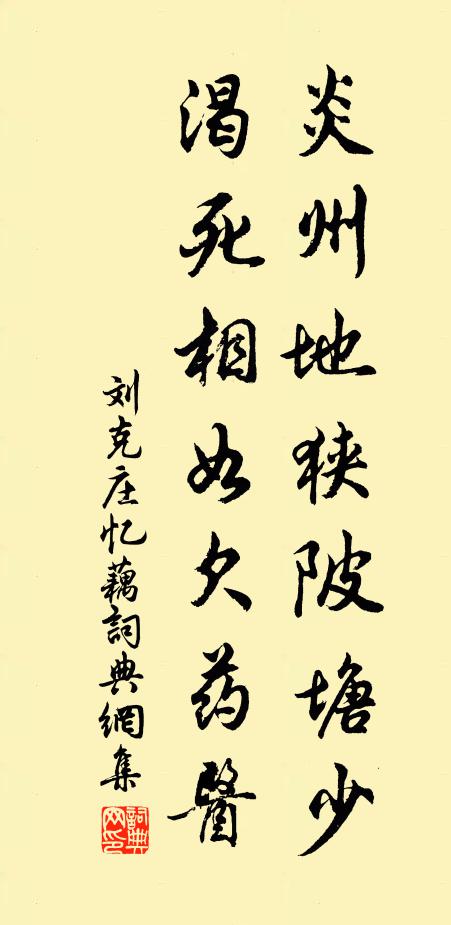 炎州地狭陂塘少
渴死相如欠药醫
刘克庄忆藕詞典網集
詞典网印